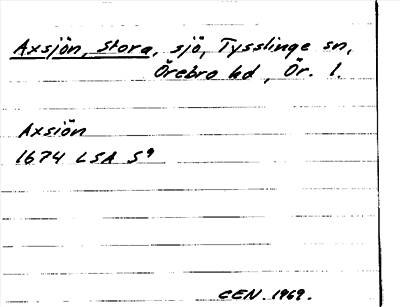 Axsjön, Stora, sjö, Tysslinge sn,
Örebro hd, Ör. l.
Axsiön
1674 LSA S9
CEN 1969.